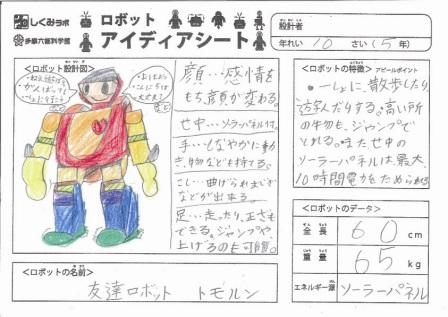 しくみラボ
多摩六都科学館
ロボット
アイディアシート
設計者
年れい 10 さい(5年)
<ロボット設計図>
顔…感情を
もち、顔が変わる。
せ中…ソーラーパネル付。
手…しなやかに動
き、物なども持てる。
こし…曲げられまいぎ
などが出来る。
足…走ったり、正ざも
できる。ジャンプや
上げるのも可能。
<ロボットの特徴>アピールポイント
いっしょに、散歩したり、
遊んだりする。高い所
の物も、ジャンプで
とれる。またせ中の
ソーラーパネルは最大、
10時間電力をためられる
<ロボットのデータ>
全長 60 cm
重量 65 kg
エネルギー源 ソーラーパネル
<ロボットの名前>
友達ロボット トモルン